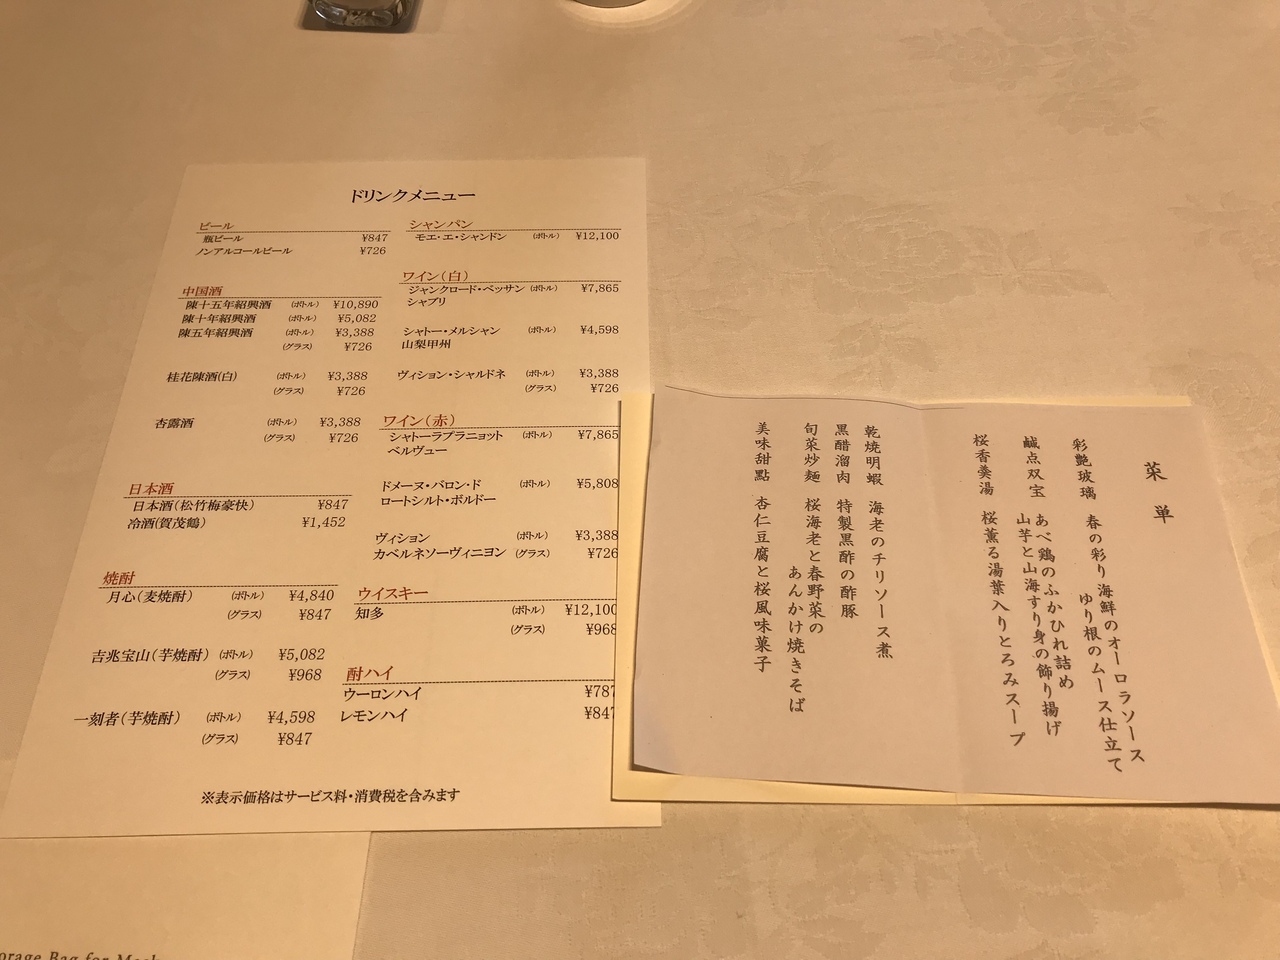 ドリンクメニュー
ビール
瓶ビール ¥847
ノンアルコールビール ¥726
中国酒
陳十五年紹興酒 (ボトル) ¥10,890
陳十年紹興酒 (ボトル) ¥5,082
陳五年紹興酒 (ボトル) ¥3,388
(グラス) ¥726
桂花陳酒(白) (ボトル) ¥3,388
(グラス) ¥726
杏露酒 (ボトル) ¥3,388
(グラス) ¥726
日本酒
日本酒(松竹梅豪快) ¥847
冷酒(賀茂鶴) ¥1,452
焼酎
月心(麦焼酎) (ボトル) ¥4,840
(グラス) ¥847
吉兆宝山(芋焼酎) (ボトル) ¥5,082
(グラス) ¥968
一刻者(芋焼酎) (ボトル) ¥4,598
(グラス) ¥847
シャンパン
モエ・エ・シャンドン (ボトル) ¥12,100
ワイン(白)
ジャンクロード・ベッサン (ボトル) ¥7,865
シャブリ
シャトー・メルシャン (ボトル) ¥4,598
山梨甲州
ヴィション・シャルドネ (ボトル) ¥3,388
(グラス) ¥726
ワイン(赤)
シャトーラプラニョット (ボトル) ¥7,865
ベルヴュー
ドメーヌ・バロン・ド (ボトル) ¥5,808
ロートシルト・ボルドー
ヴィション (ボトル) ¥3,388
カベルネソーヴィニヨン (グラス) ¥726
ウイスキー
知多 (ボトル) ¥12,100
(グラス) ¥968
酎ハイ
ウーロンハイ ¥787
レモンハイ ¥847
※表示価格はサービス料・消費税を含みます
菜単
彩艶玻璃 春の彩り海鮮のオーロラソース
ゆり根のムース仕立て
鹹点双宝 あべ鶏のふかひれ詰め
山芋と山海すり身の飾り揚げ
桜香羹湯 桜薫る湯葉入りとろみスープ
乾焼明蝦 海老のチリソース煮
黒醋溜肉 特製黒酢の酢豚
旬菜炒麺 桜海老と春野菜の
あんかけ焼きそば
美味甜點 杏仁豆腐と桜風味菓子
orage Bag for Mask